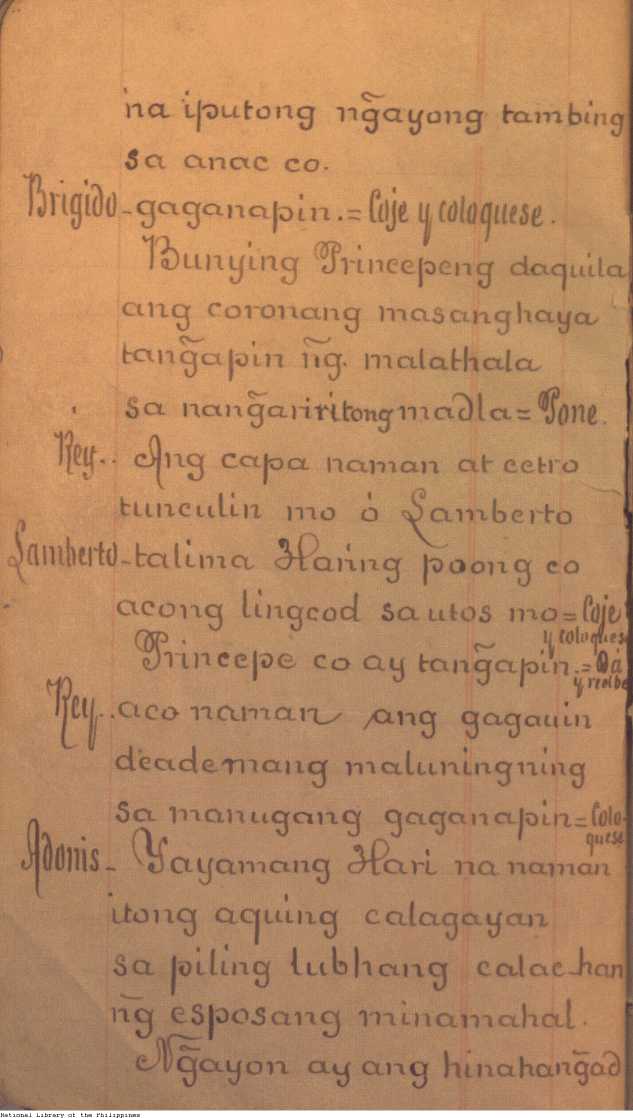 na iputong ng̃ayong tambing
sa anac co.
Brigido-gaganapin.= Coje y coloquese.
Bunying Princepeng daquila
ang coronang masanghaya
tang̃apin ñg. malathala
sa nang̃ariritong madla= Pone.
Rey.. Ang capa naman at cetro
tunculin mo ó Lamberto
Lamberto-talima Haring poong co
acong lingcod sa utos mo= Coje
y coloquese
Princepe co ay tang̃apin.= Dá
y recibe
Rey..aco naman ang gagauin
deademang maluningning
sa manugang gaganapin=Colo-
quese
Adonis- Yayamang Hari na naman
itong aquing calagayan
sa piling lubhang calac-han
ñg esposang minamahal.
Ng̃ayon ay ang hinahang̃ad
National Library of the Philippines